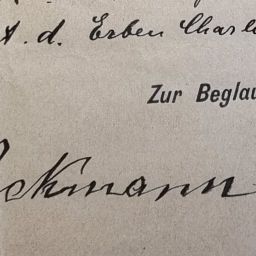 A. d. Erben Charl
Zur Beglau
ckmann